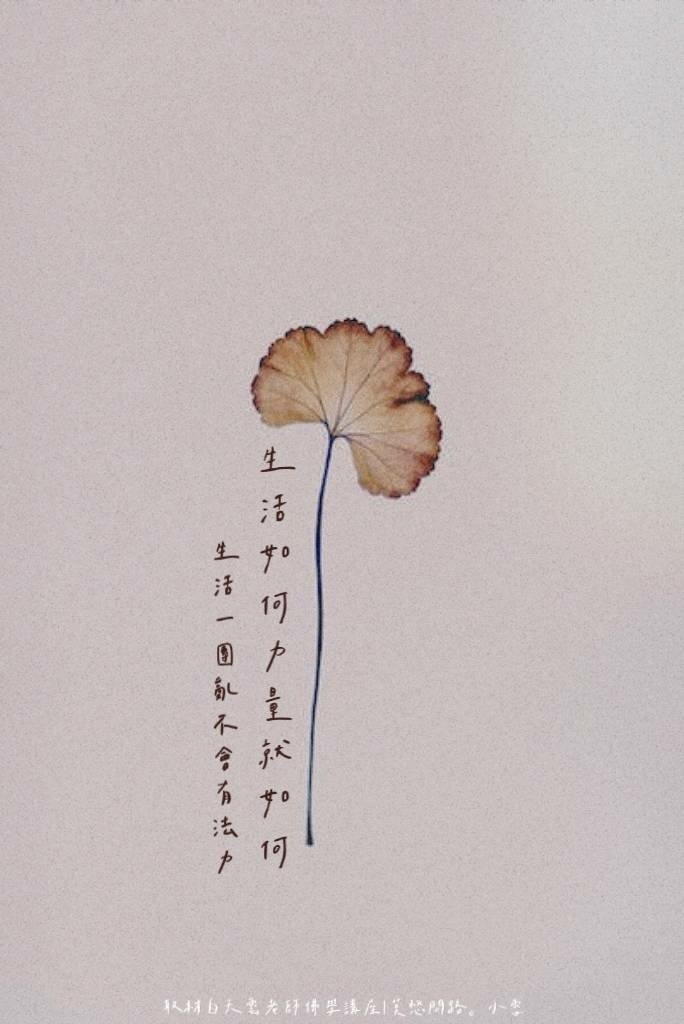 生活如何力量就如何
生活一團亂不會有法力
取材自天雲老師佛學講座|笑悠問路。小雲